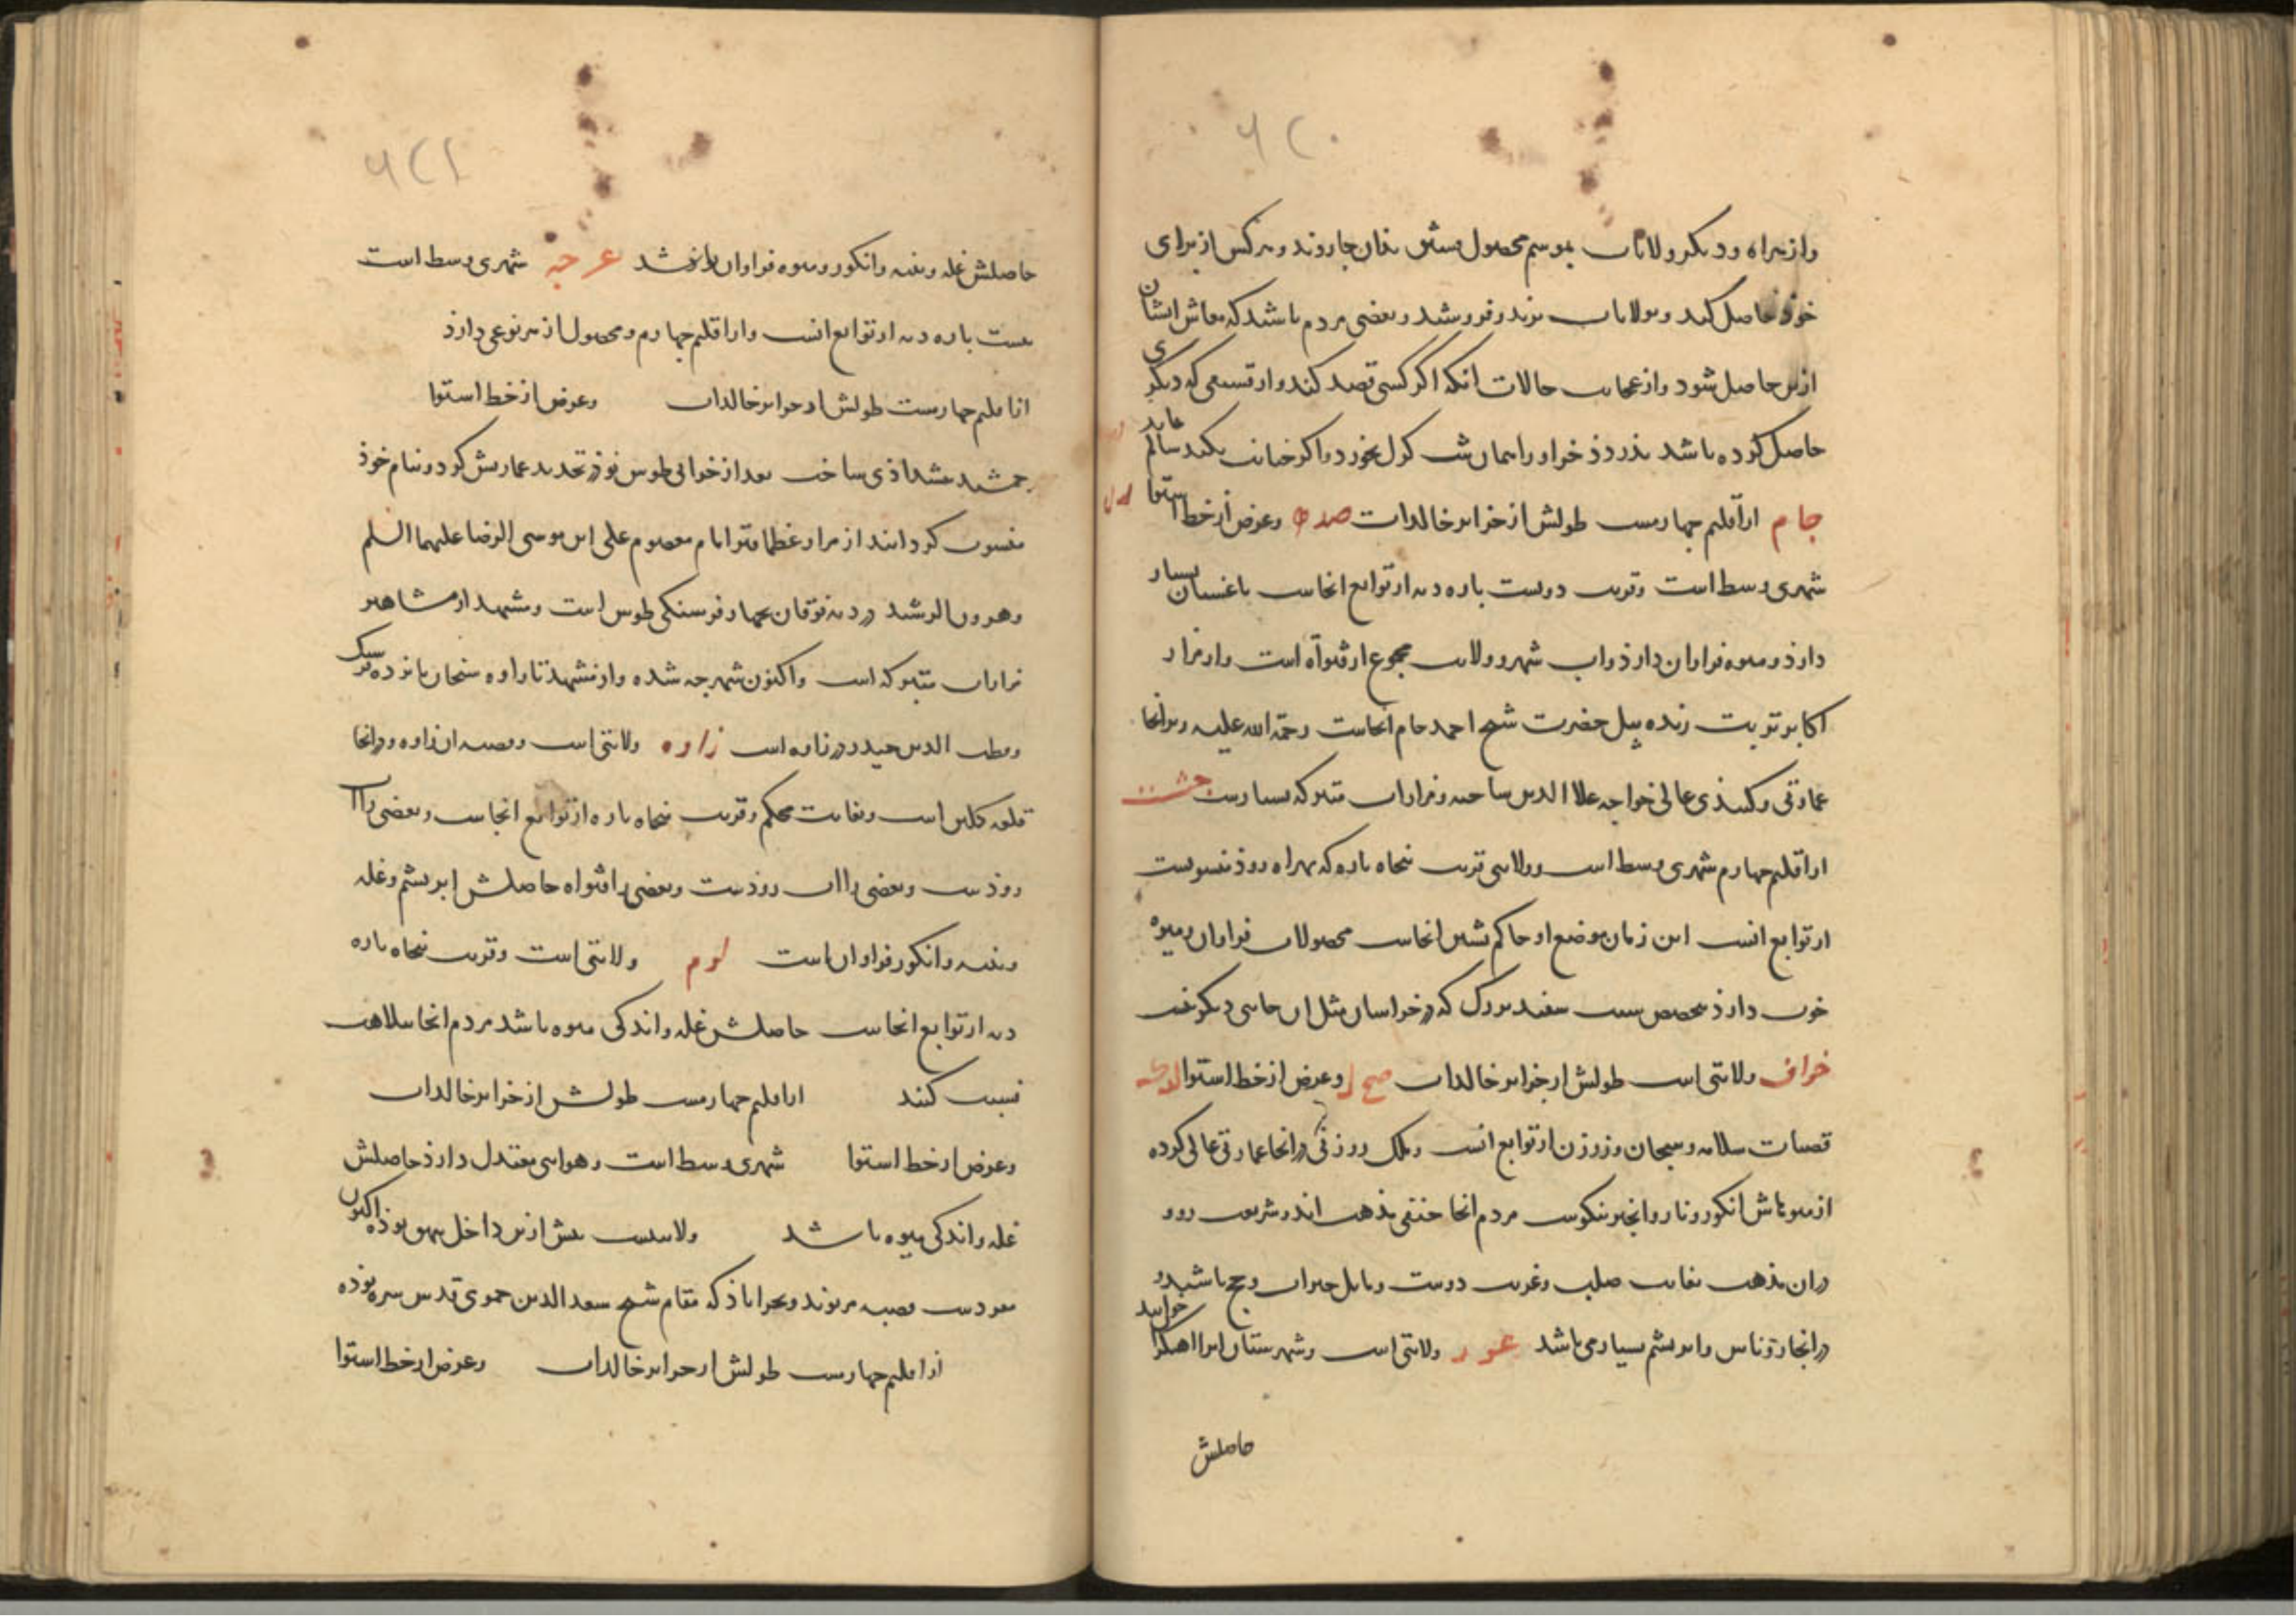 ۶۲۰
واز هراه ودیکر ولایات بموسم محصول پستق بدان جا روند و هرکس از برای
خوذ حاصل کند وبولایات برند و فروشند وبعضی مردم باشند که معاش ایشان
ازین حاصل شود واز عجایب حالات انکه اکر کسی قصد کند واز قسمی که دیکری
حاصل کرده باشد بدزدذ خر او را همان شب کرل بخورد واکر خیانت نکند سالم ماند
جام از اقلیم چهارمست طولش از خزایر خالدات صده وعرض از خط استوا لدل
شهری وسط است وقریب دویست باره دیه از توابع انجاست باغستان بسیار
دارذ ومیوه فراوان دارذ واب شهر وولایت مجموع از قنواة است واز مزار
اکابر تربت زنده پیل حضرت شیخ احمد جام انجاست رحمة الله علیه وبرانجا
عمارتی وکنبذی عالی خواجه علاا الدین ساخته ومزارات متبرکه بسیارست چشت
از اقلیم چهارم شهری وسط است وولایتی قریب پنجاه باره که بهراه روذ منسوبست
از توابع انست این زمان موضع او حاکم نشین انجاست محصولات فراوان ومیوه
خوب دارذ بتخصیص سیب سفید بزرک که در خراسان مثل ان جایی دیکر نیست
خواف ولایتی است طولش از خزایر خالدات صح ل وعرض از خط استوا لدک
قصبات سلامه وسنجان وزوزن از توابع انست وملک زوزنی در انجا عمارتی عالی کرده
از میوهاش انکور ونار وانجیر نیکوست مردم انجا حنفی مذهب اند وشریعت رو و
در ان مذهب بغایت صلب وغریب دوست ومایل خیرات وحج باشند و
در انجا روناس وابریشم بسیار می باشد عور ولایتی است وشهرستان انرا اهنکران خوانند
حاصلش
۶۲۱
حاصلش غله وپنبه وانکور ومیوه فراوان باشد عرجه شهری وسط است
بیست باره دیه از توابع انست واز اقلیم چهارم ومحصول از هر نوعی دارذ
از اقلیم چهارست طولش از جزایر خالدات وعرض از خط استوا
جمشید پیشداذی ساخت بعد از خرابی طوس نوذر تجدید عمارتش کرد و بنام خوذ
منسوب کردانید از مزار عظما قبر امام معصوم علی ابن موسی الرضا علیهما السلم
وهرون الرشید در دیه نوقان بچهار فرسنکی طوس است ومشهد از مشاهیر
مزارات متبرکه است واکنون شهرچه شده واز مشهد تا زاوه سنجان پانزده فرسنک
وقطب الدین حیدر در زاوه است زاوه ولایتی است وقصبه ان زاوه ودر انجا
قلعه کلین است وبغایت محکم وقریب پنجاه باره از توابع انجاست وبعضی را اب
روذست وبعضی را اب روذست وبعضی را قنواه حاصلش ابریشم وغله
وپنبه وانکور فراوان است لوم ولایتی است وقریب پنجاه باره
دیه از توابع انجاست حاصلش غله واندکی میوه باشد مردم انجا بسلاهت
نسبت کنند از اقلیم چهارمست طولش از خزایر خالدات
وعرض از خط استوا شهری وسط است وهوایی معتدل دارذ حاصلش
غله واندکی میوه باشد ولایتیست پیش ازین داخل بیهق بوذه اکنون
مفردست قصبه مریوند وبحراباذ که مقام شیخ سعد الدین حموی قدس سره بوذه
از اقلیم چهارست طولش از جزایر خالدات وعرض از خط استوا